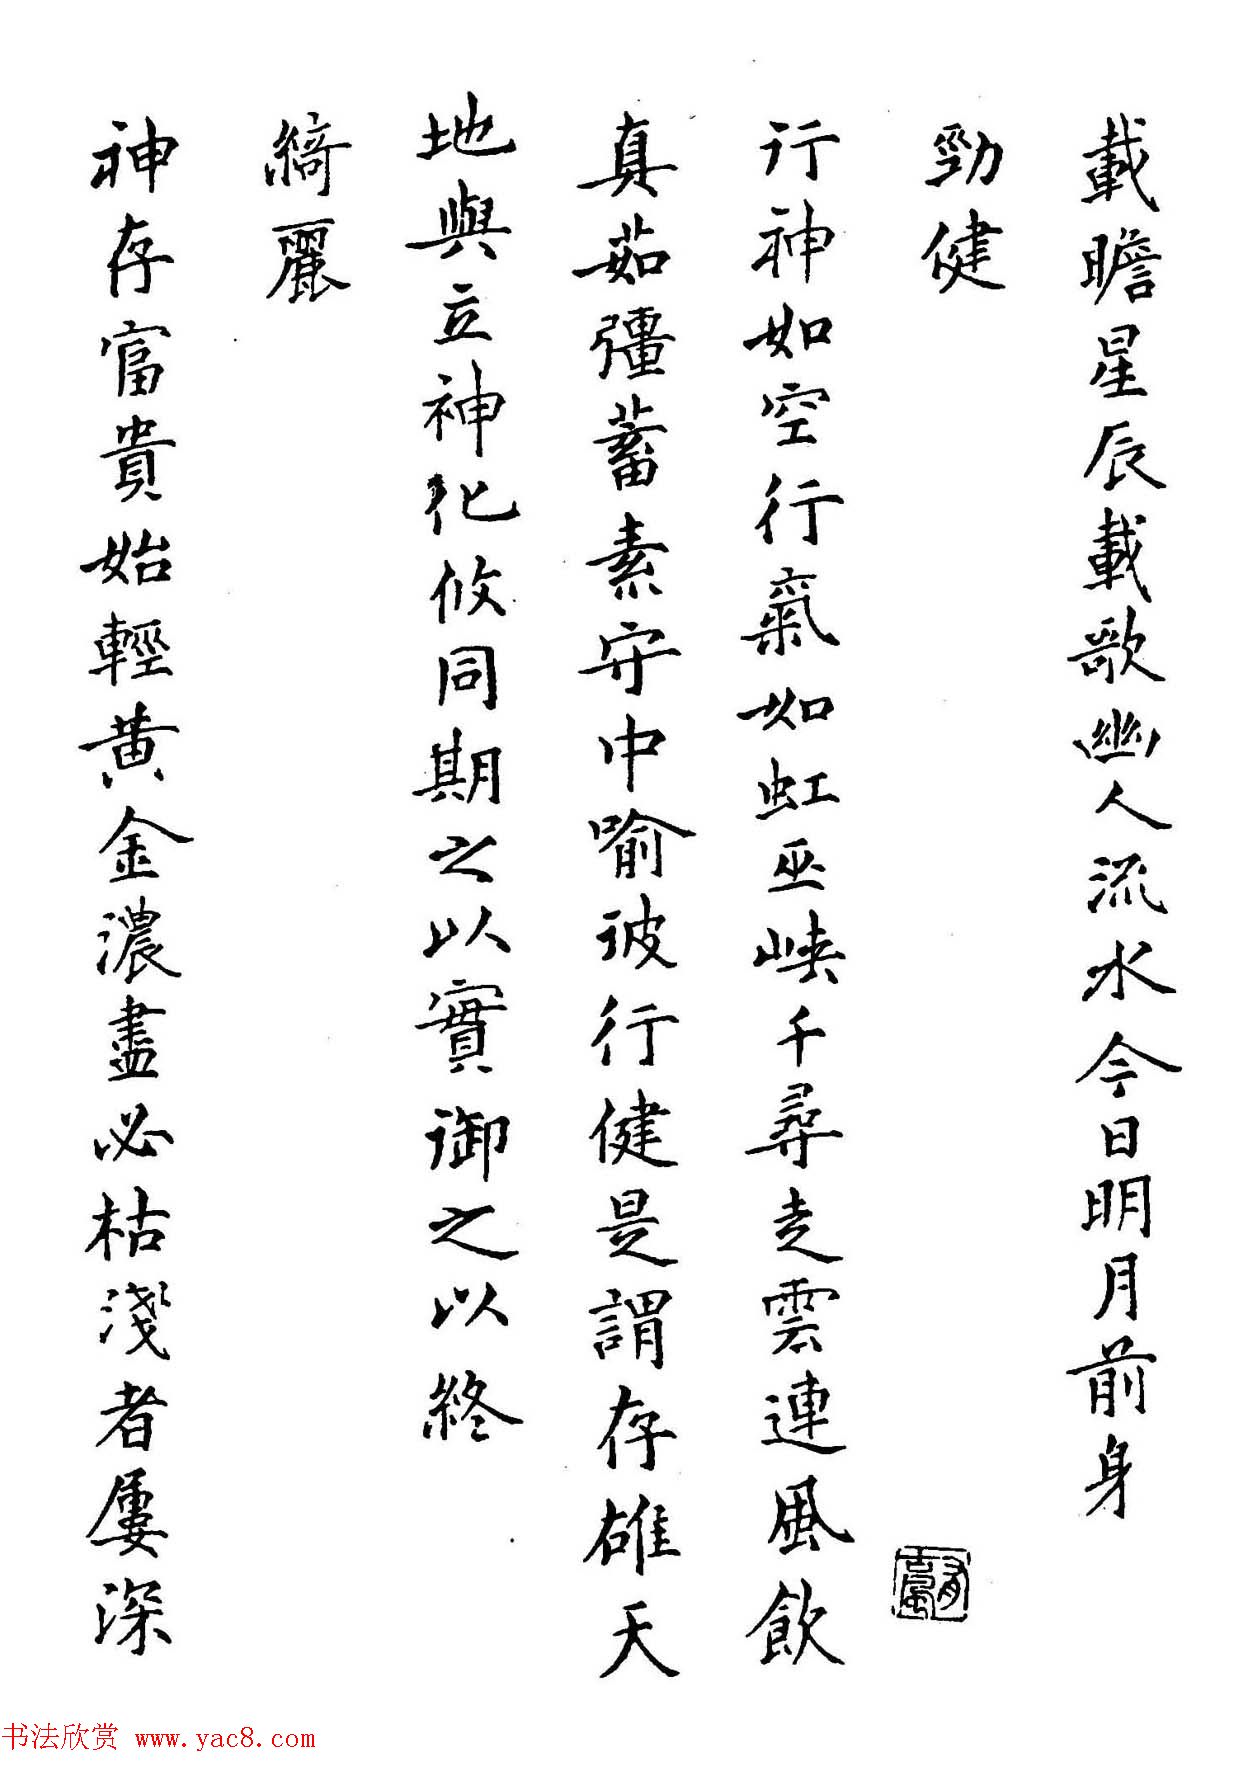 載瞻星辰載歌幽人流水今日明月前身
勁健
行神如空行氣如虹巫峽千尋走雲連風飲
真茹彊蓄素守中喻彼行健是謂存雄天
地與立神化攸同期之以實御之以終
綺麗
神存富貴始輕黄金濃盡必枯淺者屢深
书法欣赏 www.yac8.com